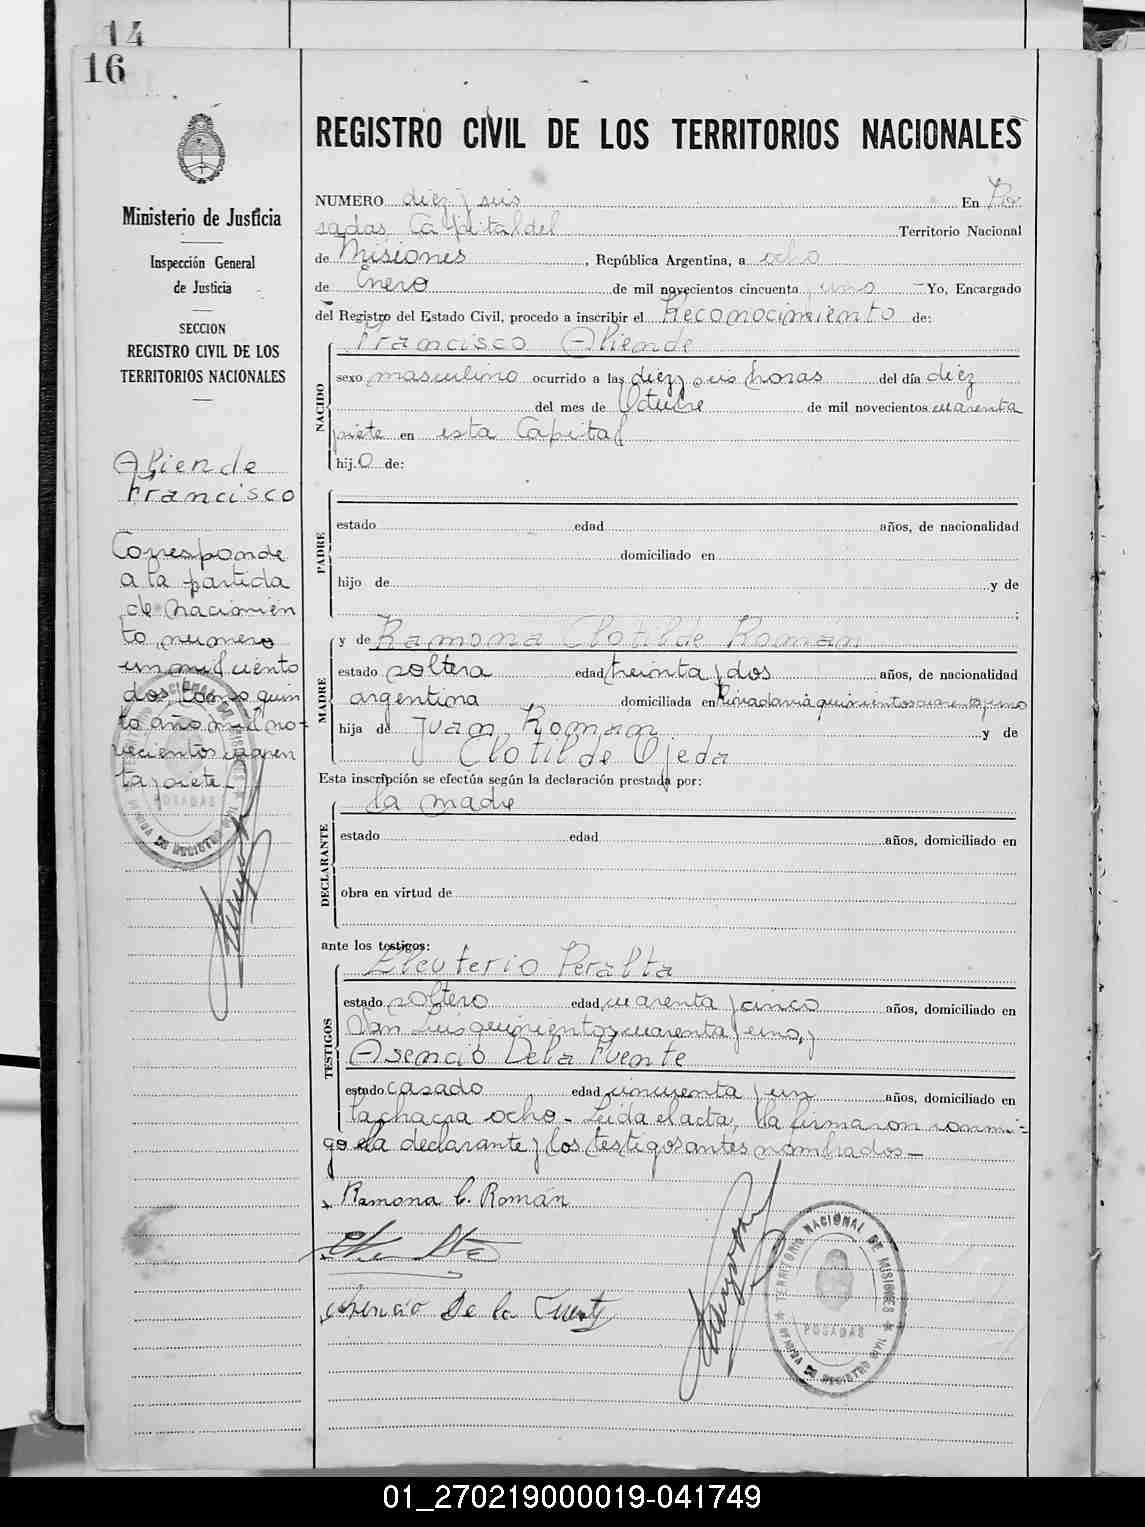 14
16
Ministerio de Justicia
Inspección General
de Justicia
SECCION
REGISTRO CIVIL DE LOS
TERRITORIOS NACIONALES
Aliende
Francisco
Corresponde
a la partida
de nacimien
to numero
un mil ciento
dos, tomo quin
to año mil no-
vecientos cuaren
ta y siete.
POSADAS
REGISTRO CIVIL DE LOS TERRITORIOS NACIONALES
NUMERO diez y seis En Po
sadas Capital del Territorio Nacional
de Misiones, República Argentina, a ocho
de Enero de mil novecientos cincuenta y uno Yo, Encargado
del Registro del Estado Civil, procedo a inscribir el Reconocimiento de:
NACIDO
Francisco Aliende
sexo masculino ocurrido a las diez y seis horas del día diez
del mes de Octubre de mil novecientos cuarenta
y siete en esta Capital
hijo de:
PADRE
estado edad años, de nacionalidad
domiciliado en
hijo de y de
;
MADRE
y de Ramona Clotilde Román
estado soltera edad treinta y dos años, de nacionalidad
argentina domiciliada en Rivadavia quinientos cuarenta y uno
hija de Juan Roman y de
Clotilde Ojeda
Esta inscripción se efectúa según la declaración prestada por:
la madre
DECLARANTE
estado edad años, domiciliado en
obra en virtud de
ante los testigos:
TESTIGOS
Eleuterio Peralta
estado soltero edad cuarenta y cinco años, domiciliado en
San Luis quinientos cuarenta y uno, y
Asencio De la Fuente
estado casado edad cincuenta y un años, domiciliado en
la chacra ocho - Leida el acta, la firmaron conmi-
go la declarante y los testigos antes nombrados -
Ramona C. Román
Asencio De la Fuente
TERRITORIO NACIONAL DE MISIONES
POSADAS
REGISTRO CIVIL
01_270219000019-041749